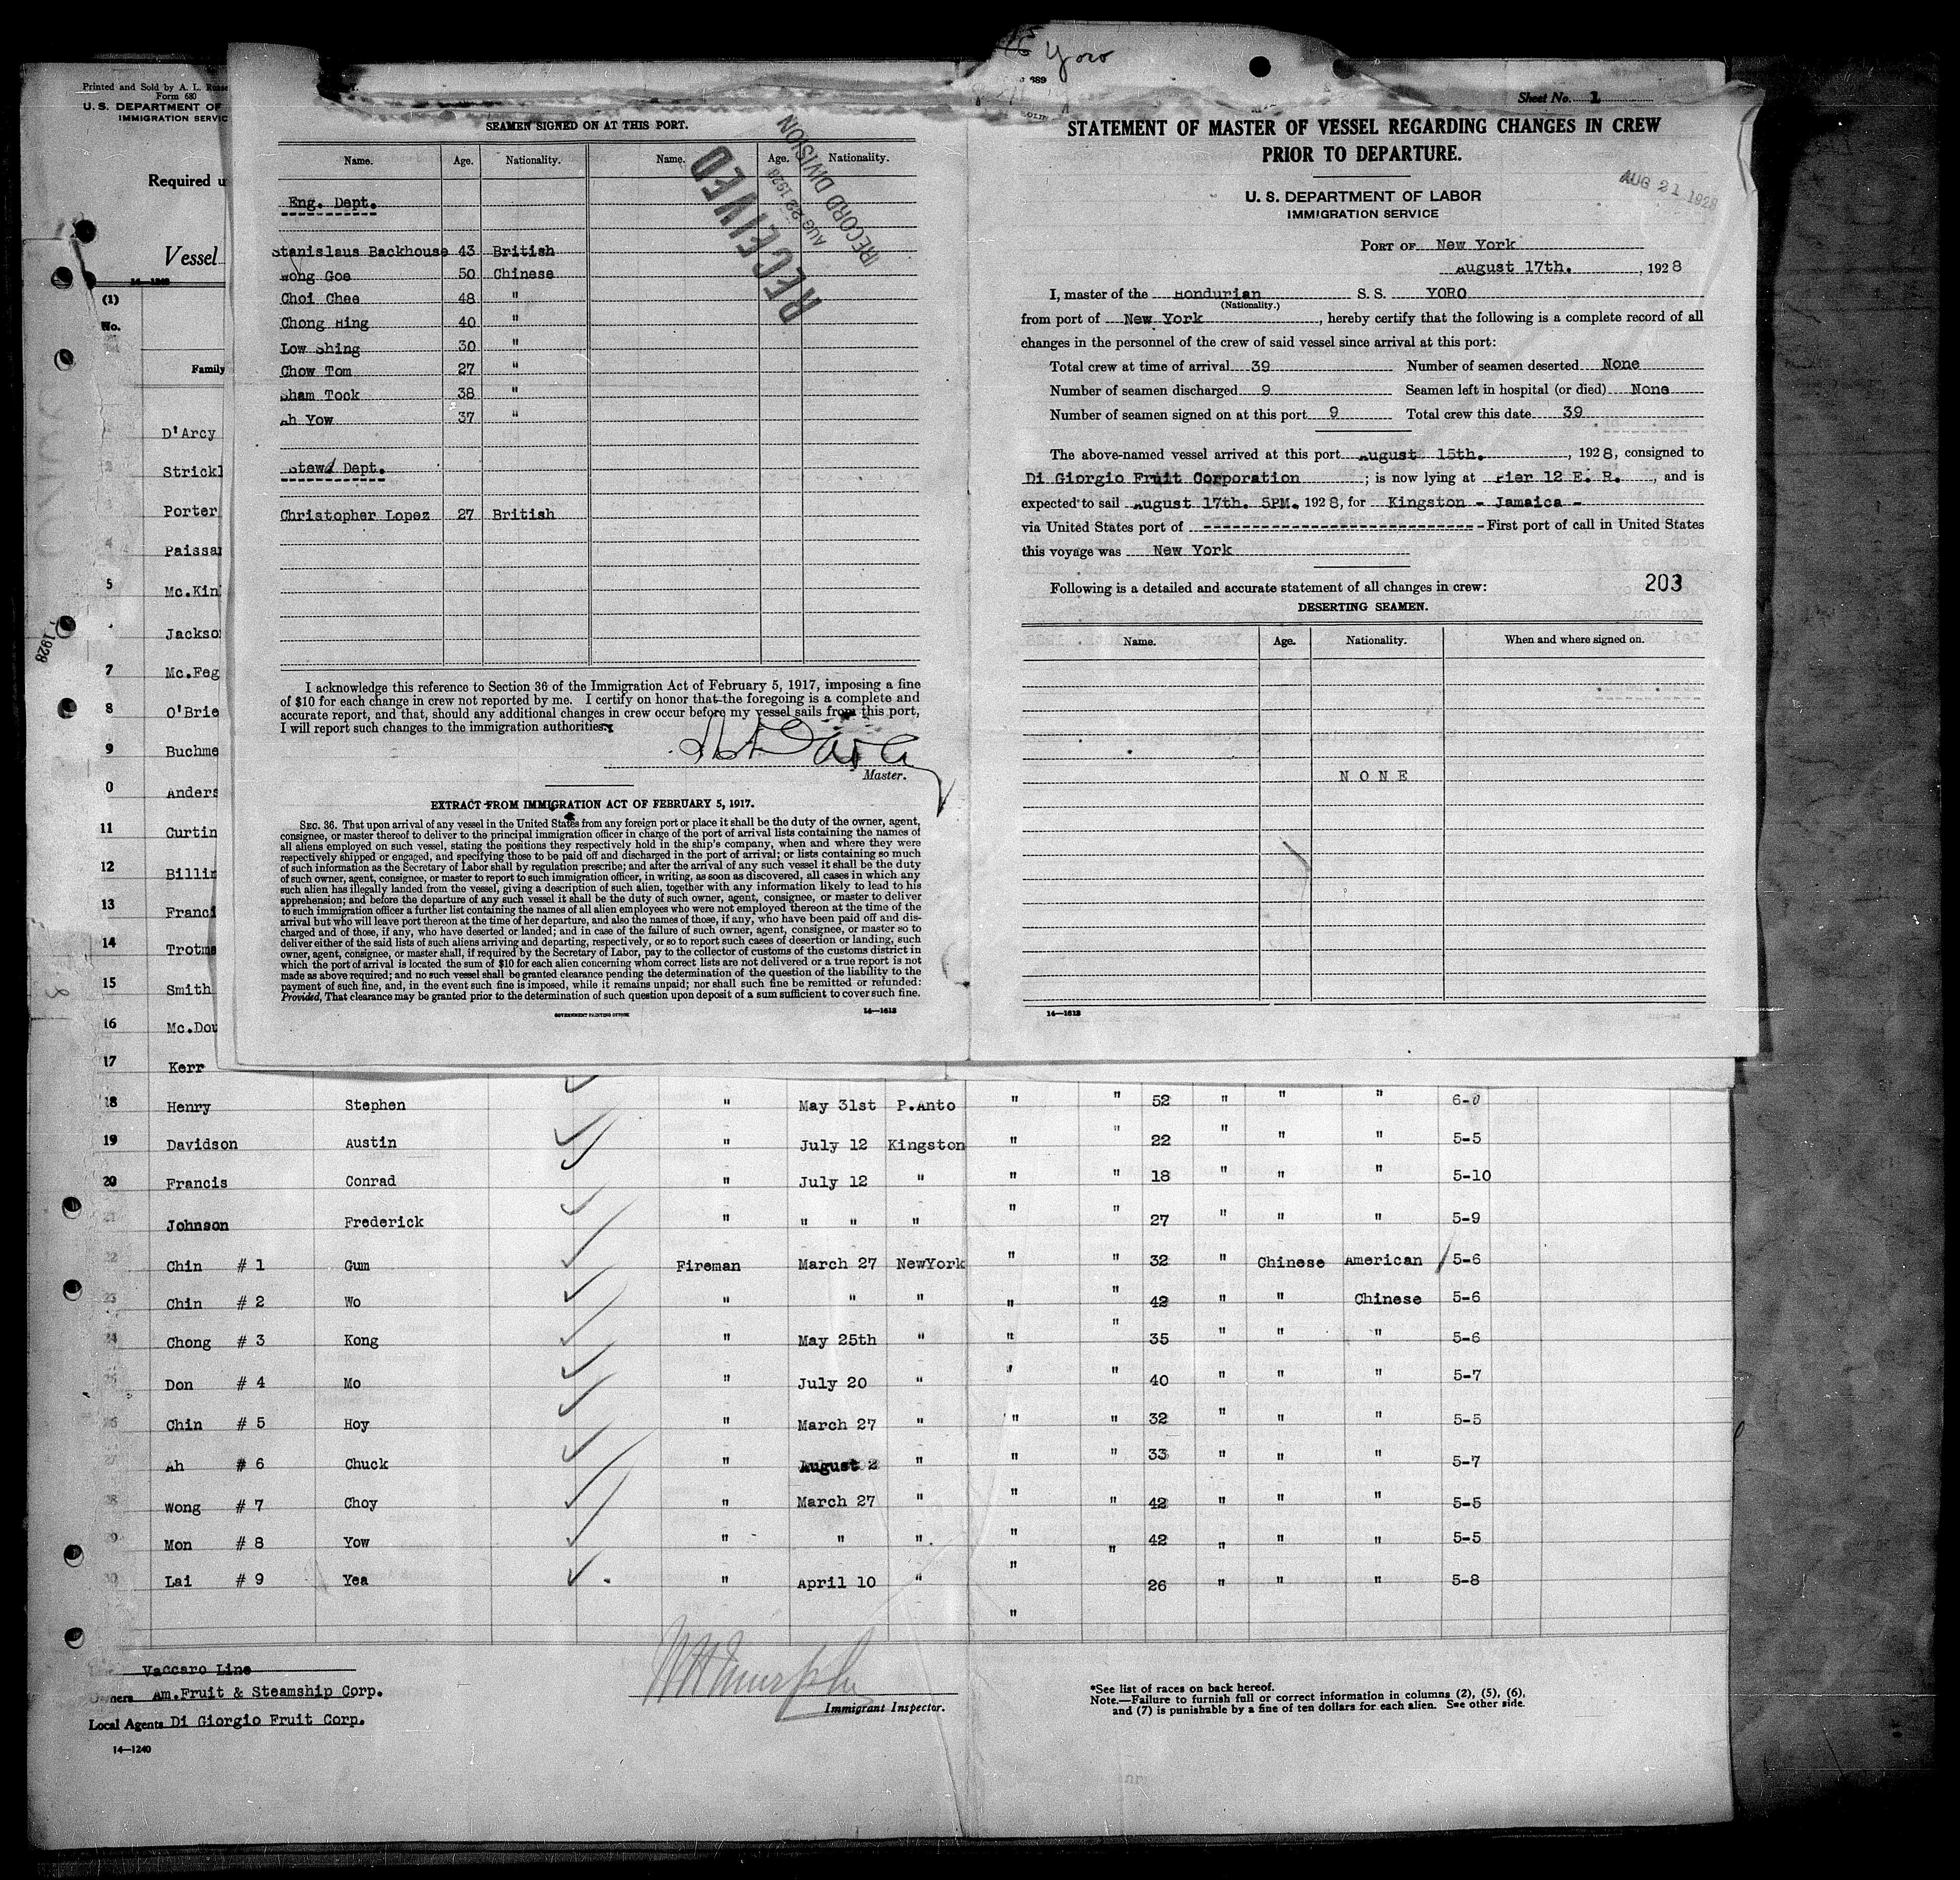 Yoro
Printed and Sold by A. L.
Form 680
U. S. DEPARTMENT OF
IMMIGRATION SERVIC
Required u
Vessel
14—1240
(1)
No.
Family
D'Arcy
Strickl
Porter
4 Paissa
5 Mc.Kin
Jackso
7 Mc.Feg
8 O'Brie
9 Buchme
0 Anders
11 Curtin
12 Billin
13 Franci
14 Trotma
15 Smith
16 Mc.Dou
17 Kerr
1928
SEAMEN SIGNED ON AT THIS PORT.
Name. Age. Nationality. Name. Age. Nationality.
RECEIVED
AUG 22 1928
RECORD DIVISION
Eng. Dept.
Stanislaus Backhouse 43 British
Wong Goe 50 Chinese
Choi Chee 48 "
Chong Hing 40 "
Low Shing 30 "
Chow Tom 27 "
Sham Tock 38 "
Ah Yow 37 "
Stewd Dept.
Christopher Lopez 27 British
I acknowledge this reference to Section 36 of the Immigration Act of February 5, 1917, imposing a fine
of $10 for each change in crew not reported by me. I certify on honor that the foregoing is a complete and
accurate report, and that, should any additional changes in crew occur before my vessel sails from this port,
I will report such changes to the immigration authorities.
Master.
EXTRACT FROM IMMIGRATION ACT OF FEBRUARY 5, 1917.
SEC. 36. That upon arrival of any vessel in the United States from any foreign port or place it shall be the duty of the owner, agent,
consignee, or master thereof to deliver to the principal immigration officer in charge of the port of arrival lists containing the names of
all aliens employed on such vessel, stating the positions they respectively hold in the ship's company, when and where they were
respectively shipped or engaged, and specifying those to be paid off and discharged in the port of arrival; or lists containing so much
of such information as the Secretary of Labor shall by regulation prescribe; and after the arrival of any such vessel it shall be the duty
of such owner, agent, consignee, or master to report to such immigration officer, in writing, as soon as discovered, all cases in which any
such alien has illegally landed from the vessel, giving a description of such alien, together with any information likely to lead to his
apprehension; and before the departure of any such vessel it shall be the duty of such owner, agent, consignee, or master to deliver
to such immigration officer a further list containing the names of all alien employees who were not employed thereon at the time of the
arrival but who will leave port thereon at the time of her departure, and also the names of those, if any, who have been paid off and dis-
charged and of those, if any, who have deserted or landed; and in case of the failure of such owner, agent, consignee, or master so to
deliver either of the said lists of such aliens arriving and departing, respectively, or so to report such cases of desertion or landing, such
owner, agent, consignee, or master shall, if required by the Secretary of Labor, pay to the collector of customs of the customs district in
which the port of arrival is located the sum of $10 for each alien concerning whom correct lists are not delivered or a true report is not
made as above required; and no such vessel shall be granted clearance pending the determination of the question of the liability to the
payment of such fine, and, in the event such fine is imposed, while it remains unpaid; nor shall such fine be remitted or refunded:
Provided, That clearance may be granted prior to the determination of such question upon deposit of a sum sufficient to cover such fine.
GOVERNMENT PRINTING OFFICE 14—1613
Sheet No. 1
STATEMENT OF MASTER OF VESSEL REGARDING CHANGES IN CREW
PRIOR TO DEPARTURE.
AUG 21 1928
U. S. DEPARTMENT OF LABOR
IMMIGRATION SERVICE
PORT OF New York
August 17th. , 1928
I, master of the Hondurian S. S. YORO
(Nationality.)
from port of New York , hereby certify that the following is a complete record of all
changes in the personnel of the crew of said vessel since arrival at this port:
Total crew at time of arrival 39 Number of seamen deserted None
Number of seamen discharged 9 Seamen left in hospital (or died) None
Number of seamen signed on at this port 9 Total crew this date 39
The above-named vessel arrived at this port August 15th. , 1928, consigned to
Di Giorgio Fruit Corporation ; is now lying at Pier 12 E. R. , and is
expected to sail August 17th. 5PM. 1928, for Kingston - Jamaica -
via United States port of - First port of call in United States
this voyage was New York
Following is a detailed and accurate statement of all changes in crew: 203
DESERTING SEAMEN.
Name. Age. Nationality. When and where signed on.
NONE
14—1613
18 Henry Stephen " May 31st P.Anto " " 52 " " " 6-0
19 Davidson Austin " July 12 Kingston " " 22 " " " 5-5
20 Francis Conrad " July 12 " " " 18 " " " 5-10
21 Johnson Frederick " " " " " " 27 " " " 5-9
22 Chin # 1 Gum Fireman March 27 NewYork " " 32 " Chinese American 5-6
23 Chin # 2 Wo " " " " " 42 " " Chinese 5-6
24 Chong # 3 Kong " May 25th " " " 35 " " " 5-6
25 Don # 4 Mo " July 20 " " " 40 " " " 5-7
26 Chin # 5 Hoy " March 27 " " " 32 " " " 5-5
27 Ah # 6 Chuck " August 2 " " " 33 " " " 5-7
28 Wong # 7 Choy " March 27 " " " 42 " " " 5-5
29 Mon # 8 Yow " " " " " 42 " " " 5-5
30 Lai # 9 Yea " April 10 " " 26 " " " 5-8
"
Vaccaro Line
Owners Am.Fruit & Steamship Corp.
Local Agents Di Giorgio Fruit Corp.
14—1240
Immigrant Inspector.
*See list of races on back hereof.
Note.—Failure to furnish full or correct information in columns (2), (5), (6),
and (7) is punishable by a fine of ten dollars for each alien. See other side.